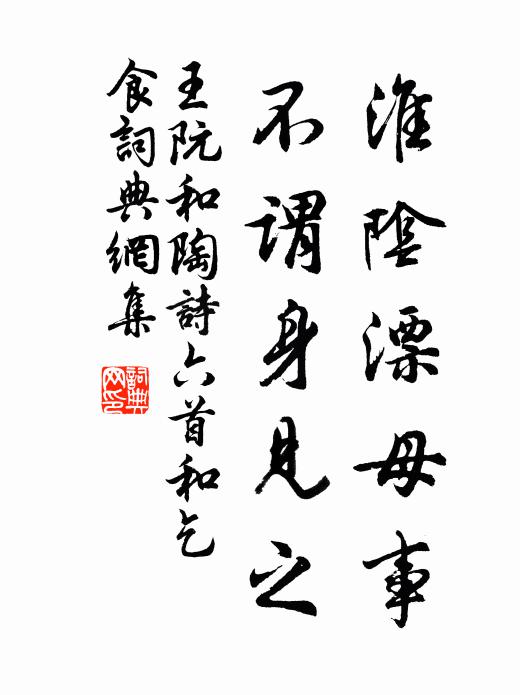 淮陰漂母事
不謂身見之
王阮和陶詩六首和乞
食詞典網集
詞典網印